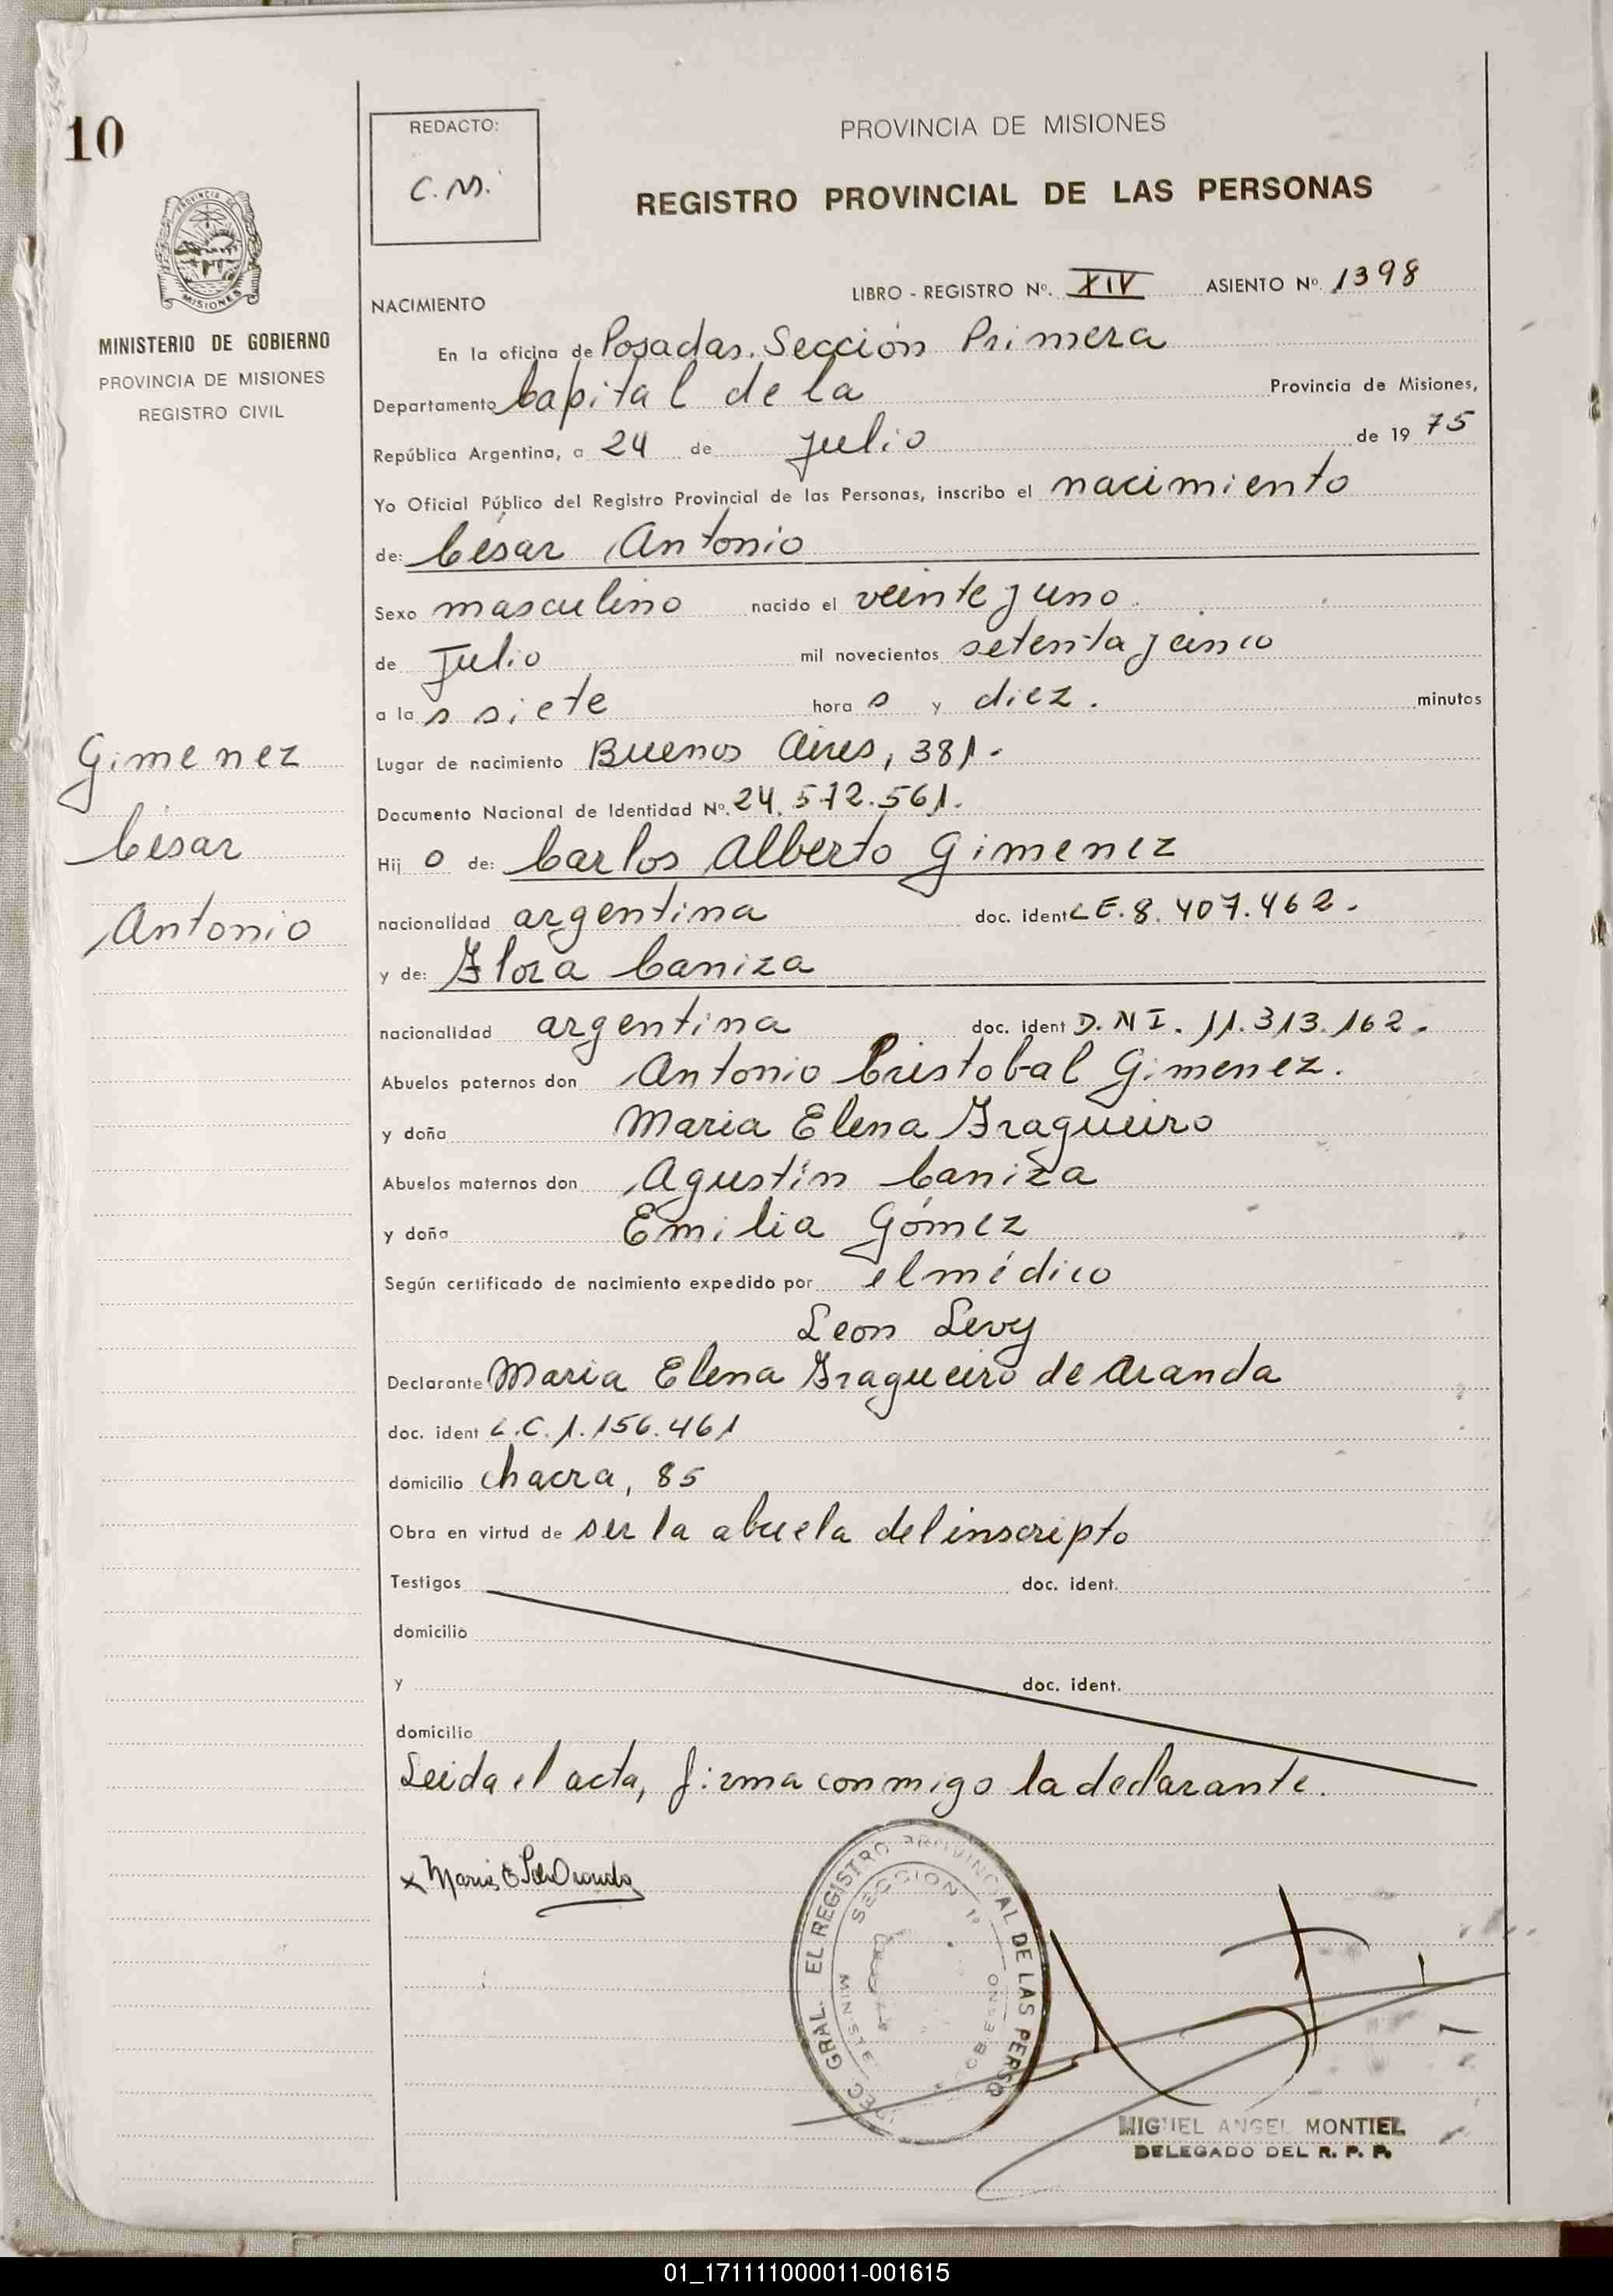 10
REDACTO:
C.M.
PROVINCIA DE MISIONES
REGISTRO PROVINCIAL DE LAS PERSONAS
PROVINCIA DE
MISIONES
MINISTERIO DE GOBIERNO
PROVINCIA DE MISIONES
REGISTRO CIVIL
Gimenez
César
Antonio
LIBRO - REGISTRO Nº. XIV ASIENTO Nº. 1398
NACIMIENTO
En la oficina de Posadas. Sección Primera
Departamento Capital de la Provincia de Misiones,
República Argentina, a 24 de julio de 19 75
Yo Oficial Público del Registro Provincial de las Personas, inscribo el nacimiento
de: César Antonio
Sexo masculino nacido el veinte y uno
de Julio mil novecientos setenta y cinco
a la s siete hora s y diez. minutos
Lugar de nacimiento Buenos Aires, 381.
Documento Nacional de Identidad Nº. 24.572.561.
Hij o de: Carlos Alberto Gimenez
nacionalidad argentina doc. ident L E. 8.407.462.
y de: Flora Caniza
nacionalidad argentina doc. ident D.N I. 11.313.162.
Abuelos paternos don Antonio Cristobal Gimenez.
y doña Maria Elena Fragueiro
Abuelos maternos don Agustín Caniza
y doña Emilia Gómez
Según certificado de nacimiento expedido por el médico
Leon Levy
Declarante Maria Elena Fragueiro de Aranda
doc. ident L.C. 1.156.461
domicilio chacra, 85
Obra en virtud de ser la abuela del inscripto
Testigos doc. ident.
domicilio
y doc. ident.
domicilio
Leida el acta, firma conmigo la declarante.
x Maria E
GRAL. EL REGISTRO PROVINCIAL DE LAS PERSO
SECCION 1ª
MIGUEL ANGEL MONTIEL
DELEGADO DEL R. P. P.
01_171111000011-001615